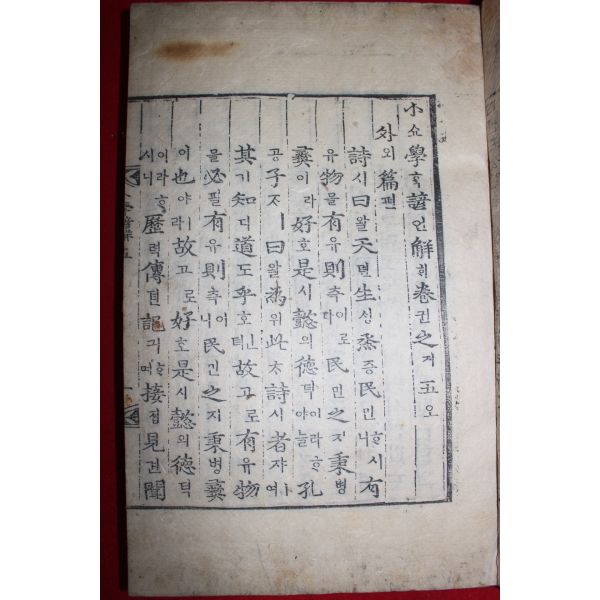 小쇼學ᄒᆞᆨ諺언解ᄒᆡ卷권之지五오
外외篇편
詩시曰왈天텬生ᄉᆡᆼ烝증民민ᄒᆞ시니有
유物믈有유則측이로다民민之지秉병
彛이라好호是시懿의德덕이라ᄒᆞ야ᄂᆞᆯ孔
공子ᄌᆞㅣ曰왈爲위此ᄎᆞ詩시者쟈여
其기知디道도乎호ᅟᅵᆫ뎌故고로有유物
믈必필有유則측이니民민之지秉병彛
이也야라故고로好호是시懿의德덕
이라ᄒᆞ시니歷력傳뎐記긔ᄒᆞ며接졉見견聞